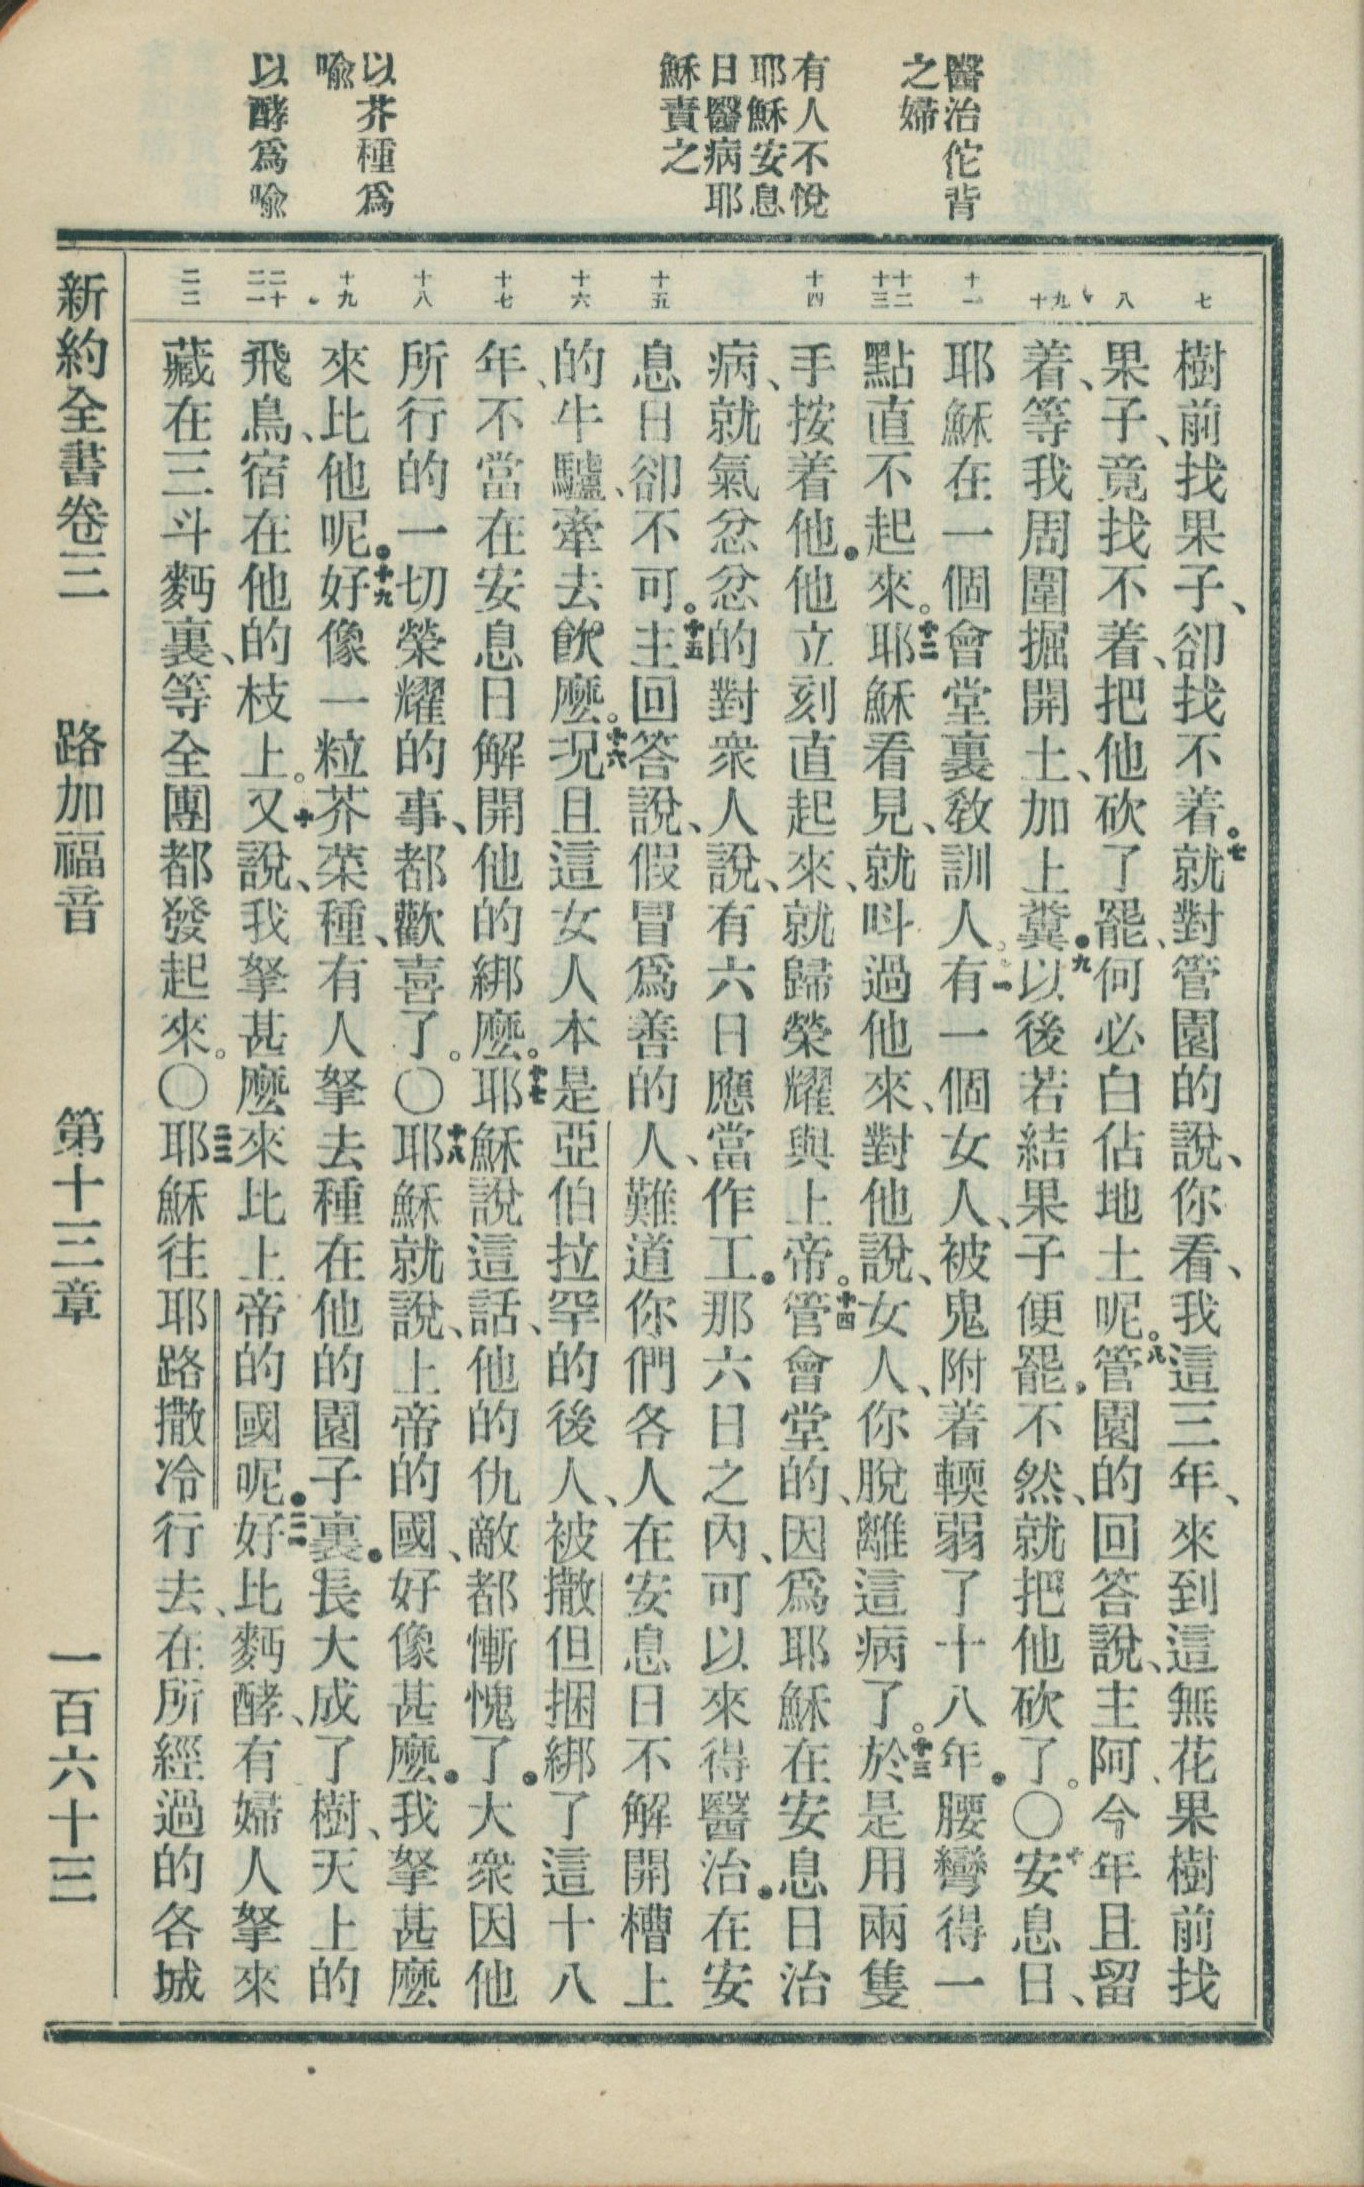 醫治佗背
之婦
有人不悅
耶穌安息
日醫病耶
穌責之
以芥種爲
喻
以酵爲喻
七
八
九
十
十一
十二
十三
十四
十五
十六
十七
十八
十九
二十
二一
二二
樹前找果子、卻找不着。七就對管園的說、你看、我這三年、來到這無花果樹前找
果子、竟找不着、把他砍了罷、何必白佔地土呢。八管園的回答說、主阿、今年且留
着、等我周圍掘開土、加上糞。九以後若結果子便罷、不然、就把他砍了。〇十安息日、
耶穌在一個會堂裏敎訓人。十一有一個女人、被鬼附着輭弱了十八年、腰彎得一
點直不起來。十二耶穌看見、就呌過他來、對他說、女人、你脫離這病了。十三於是用兩隻
手按着他。他立刻直起來、就歸榮耀與上帝。十四管會堂的、因爲耶穌在安息日治
病、就氣忿忿的對衆人說、有六日應當作工。那六日之內、可以來得醫治。在安
息日卻不可。十五主回答說、假冒爲善的人、難道你們各人在安息日不解開槽上
的牛驢、牽去飮麽。十六況且這女人本是亞伯拉罕的後人、被撒但捆綁了這十八
年、不當在安息日解開他的綁麽。十七耶穌說這話、他的仇敵都慚愧了。大衆因他
所行的一切榮耀的事、都歡喜了。〇十八耶穌就說、上帝的國、好像甚麽。我拏甚麽
來比他呢。十九好像一粒芥菜種、有人拏去種在他的園子裏。長大成了樹、天上的
飛鳥、宿在他的枝上。二十又說、我拏甚麽來比上帝的國呢。二一好比麪酵、有婦人拏來
藏在三斗麪裏、等全團都發起來。〇二二耶穌往耶路撒冷行去、在所經過的各城
新約全書卷三 路加福音 第十三章 一百六十三